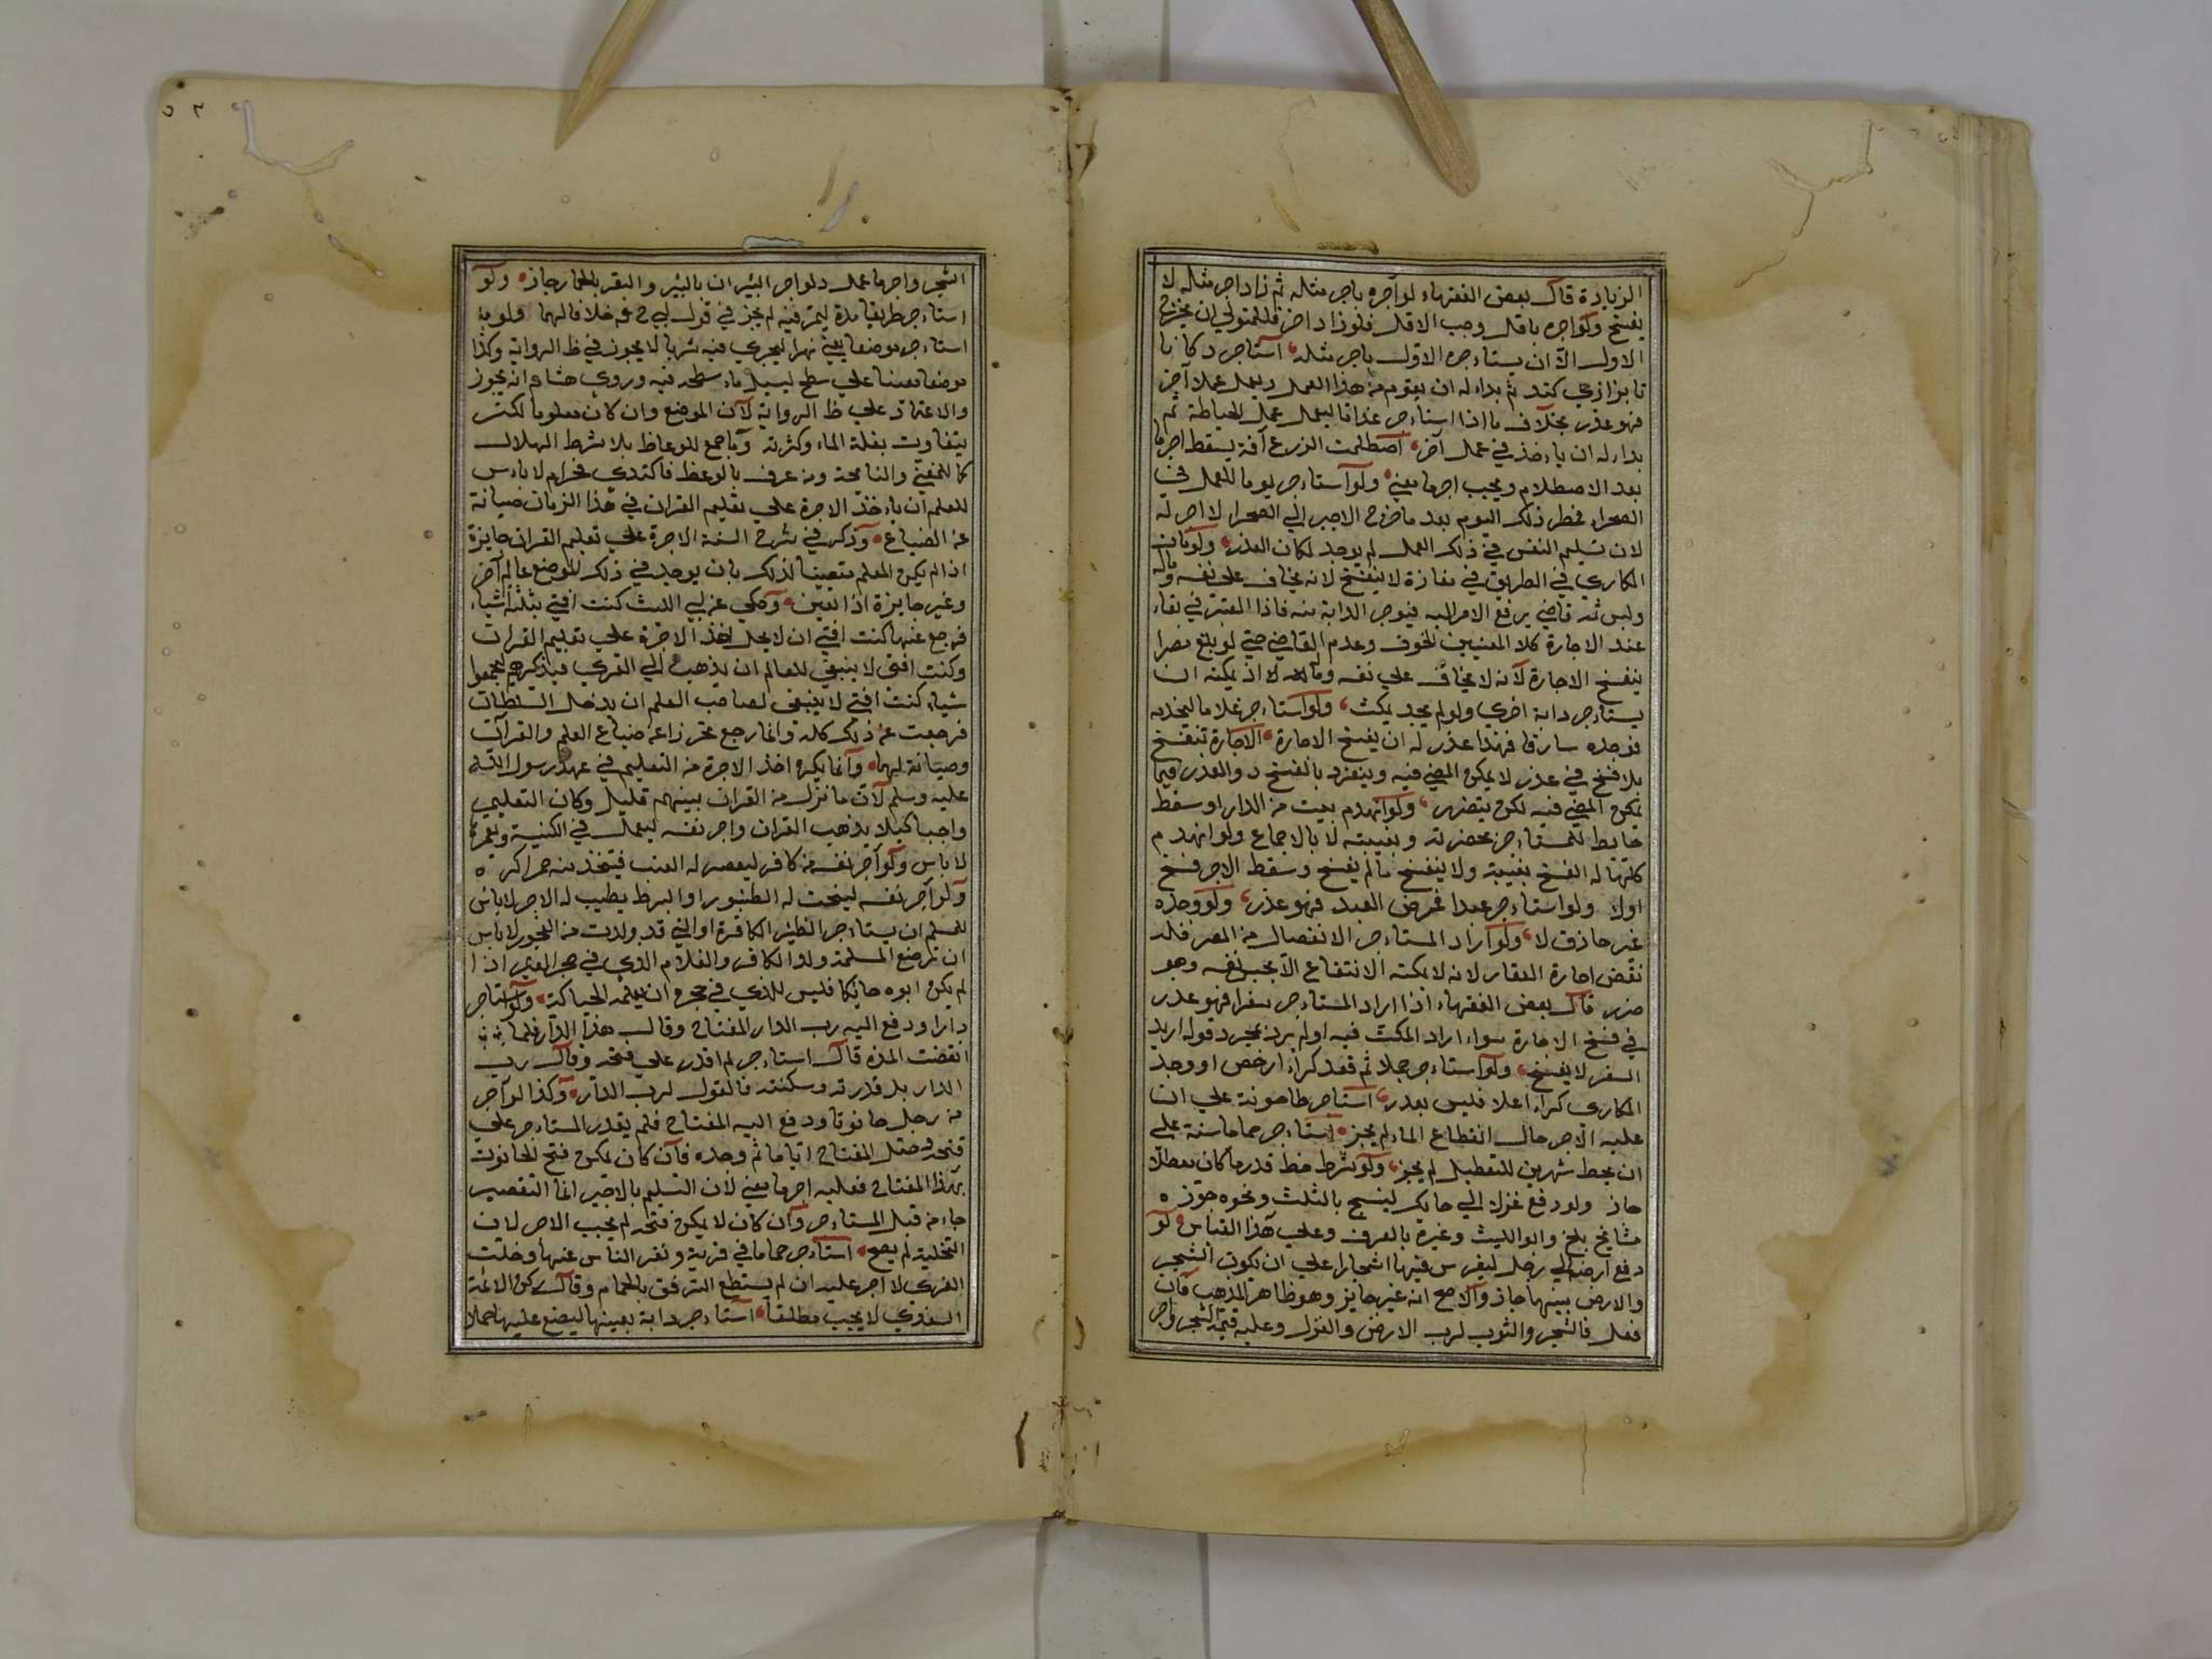 الزيادة قال بعض الفقهاء لو آجره باجر مثله ثم زاد اجر مثله لا
يفسخ ولو اجره باقل وجب الاقل فلو زاد اخر فللمتولي ان يخرج
الاول الا ان يستاءجره الاول باجر مثله استاجر دكانا
تا بزازي كند ثم بداء له ان يقوم من هذا العمل ويعمل عملا آخر
فهو عذر بخلاف ما اذا استاءجر غدانا ليعمل عمل الخياطة ثم
بداء له ان ياءخذ في عمل آخر اصطلمت الزرع آفة يسقط اجر ما
بعد الاصطلام ويجب اجر ما مضي ولو آستاءجر يوما للعمل في
الصحراء فمطر ذلك اليوم بعد ما خرج الاجير الي الصحراء لا اجر له
لان تسليم النفس في ذلك العمل لم يوجد لمكان العذر ولو مات
المكاري في الطريق في مفازة لا ينفسخ لانه يخاف علي نفسه وماله
وليس ثمه قاضي يرفع الامر اليه فيوجر الدابة منه فاذا المعتبر في بقاء
عقد الاجارة كلا المعنيين الخوف وعدم القاضي حتي لو بلغ مصرا
ينفسخ الاجارة لانه لا يخاف علي نفسه وماله لا انه يمكنه ان
يستاءجر دابة اخري ولو لم يجد يمكث ولو استاءجر غلاما ليخدمه
فوجده سارقا فهذا عذر له ان يفسخ الاجارة الاجارة تنفسخ
بلا فسخ في عذر لا يمكن المضي فيه وينفرد بالفسخ ذو العذر فيما
يمكن المضي فيه لكن يتضرر ولو انهدم بيت من الدار او سقط
حايط للمستاءجر بحضرته وبغيبته لا بالاجماع ولو انهدم
كلها له الفسخ بغيبته ولا ينفسخ ما لم يفسخ وسقط الاجر فسخ
اولا ولو استاءجر عبدا فمرض العبد فهو عذر ولو وجده
غير حاذق لا ولو اراد المستاءجر الانفصال من المصر فله
نقض اجارة العقار لانه لا يمكنه الانتفاع الا بحبس نفسه وهو
ضرر قال بعض الفقهاء اذا اراد المستاءجر سفرا فهو عذر
في فسخ الاجارة سواء اراد المكث فيه او لم يرد بمجرد قوله اريد
السفر لا يفسخ ولو آستاءجر جملا ثم قعد كراء ارخص او وجد
المكاري كراء اعلا فليس بعذر استاجر طاحونة علي ان
عليه الاجر حال انقطاع الماء لم يجز استاءجر حماما سنة علي
ان يحط شهرين للتعطيل لم يجز ولو شرط حط قدر ما كان معطلا
جاز ولو دفع غزلا الي حايك لينسج بالثلث ونحوه جوزه
مشايخ بلخ وابو الليث وغيره بالعرف وعلي هذا القياس لو
دفع ارضه الي رجل ليغرس فيها اشجارا علي ان تكون الشجر
والارض بينهما جاز والاصح انه غير جايز وهو ظاهر المذهب فان
فعل فالشجر والثوب لرب الارض والغزل وعليه قيمة الشجر واجر
الشجر واجر ما عمل ولو اجر البئران بالبئر والبقر بالحمار جاز ولو
استاءجر طريقا مدة ليمر فيه لم يجز في قول ابي ح خلافا لهما ولو
استاءجر موضعا يعني نهرا ليجري فيه شربا لا يجوز في ظ الرواية وكذا
موضعا معينا علي سطح ليسيل ماء سطحه فيه وروي هشام انه يجوز
والاعتماد علي ظ الرواية لان الموضع وان كان معلوما لكنه
يتفاوت بقلة الماء وكثرته وما جمع للوعاظ بلا شرط الهلال
كما للمغني والنائحة ومن عرف بالوعظ فاكتدي فحرام لا باءس
للمعلم ان ياءخذ الاجرة علي تعليم القران في هذا الزمان صيانة
عن الضياع وذكر في شرح السنة الاجرة علي تعليم القران جايزة
اذا لم يكن المعلم متعينا لذلك بان يوجد في ذلك الموضع عالم آخر
وغير جايزة اذا تعين وحكي عن ابي الليث كنت افتي بثلثة اشياء
فرجع عنها كنت افتي ان لا يحل اخذ الاجرة علي تعليم القران
وكنت افتي لا ينبغي للعالم ان يذهب الي القري فيذكرهم ليجمعوا
شيئا كنت افتي لا ينبغي لصاحب العلم ان يدخل السلطان
فرجعت عن ذلك كله وانما رجع تحرزا عن ضياع العلم والقرآن
وصيانة لهما وانما يكره اخذ الاجرة من التعليم في عهد رسول الله
عليه وسلم لان ما نزل من القران بينهم قليل وكان التعليم
واجبا كيلا يذهب القران واجر نفسه ليعمل في الكنيسة ويعمرها
لا باس ولو آجر نفسه من كافر ليعصر له العنب فيتخذ منه خمرا كره
ولو آجر نفسه لينحت له الطنبور او البربط يطيب له الاجر لا باس
للمسلم ان يستاءجر الظئر الكافرة او التي قد ولدت من الفجور لا باس
ان ترضع المسلمة ولد الكافر والغلام الذي في حجر الغير اذا
لم يكن ابوه حائكا فليس للذي في حجره ان يعلمه الحياكة ولو استاجر
دارا ودفع اليه رب الدار المفتاح وقال هذا الدار فلما
انقضت المدة قال استاءجر لم اقدر علي فتحه وقال رب
الدار بل قدرته وسكنته فالقول لرب الدار وكذا لو آجر
من رجل حانوتا ودفع اليه المفتاح فلم يقدر المستاءجر علي
فتحه وضل المفتاح اياما ثم وجده فان كان يمكن فتح الحانوت
بهذا المفتاح فعليه اجر ما مضي لان التسليم بالاخير انما التقصير
جاء من قبل المستاءجر وان كان لا يمكن فتحه لم يجب الاجر لان
التخلية لم يصح استاءجر حماما في قرية ونفر الناس عنها وخلت
القري لا اجر عليه ان لم يستطع الترفق بالحمام وقال ركن الائمة
السغدي لا يجب مطلقا استاءجر دابة بعينها ليضع عليها حملا